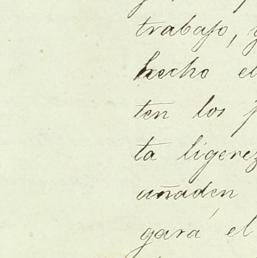 trabajo, y
hecho el
ten los
ta ligerez
añaden
gará el